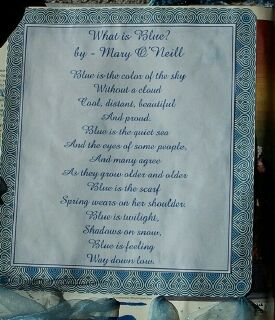 What is Blue?
by - Mary O'Neill
Blue is the color of the sky
Without a cloud
Cool, distant, beautiful
And proud.
Blue is the quiet sea
And the eyes of some people,
And many agree
As they grow older and older
Blue is the scarf
Spring wears on her shoulder.
Blue is twilight,
Shadows on snow,
Blue is feeling
Way down low.